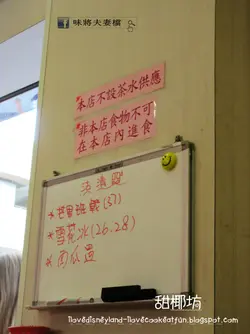 味將夫妻檔
本店不設茶水供應
非本店食物不可
在本店內進食
芒果班戟(37)
雪花冰(26.28)
甜椰坊
1lovedisneyland-1lovecookeatfun.blogspot.com